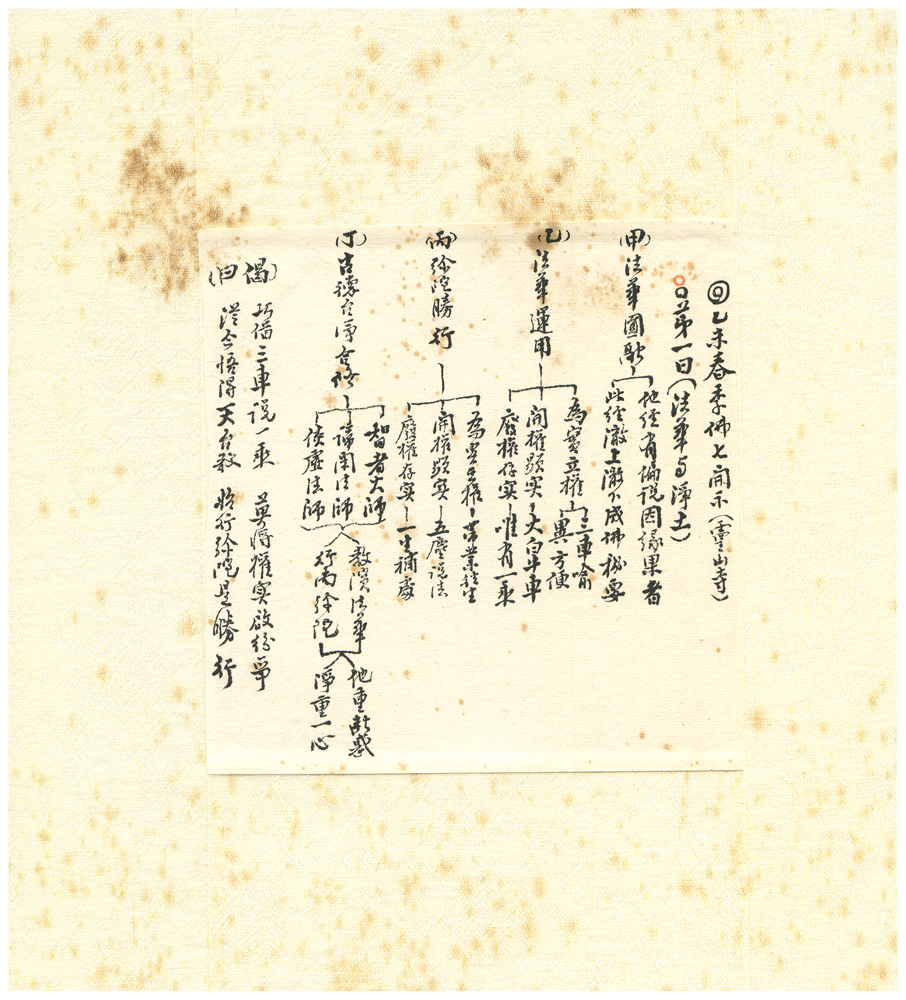 ◎乙未春季佛七開示(靈山寺)
○第一日(法華与淨土)
(甲)法華圓融
他經有偏説因緣果者
此經徹上徹下成佛秘要
(乙)法華運用
為實立權
三車喻
異方便
開權顯实-大白牛車
廢權存实-唯有一乘
(丙)弥陀勝行
為实立權-帶業往生
開權顯实-五塵説法
廢權存实-一生補處
(丁)古德台淨合修
智者大師
諦閑法師
倓虛法師
教演法華
行向弥陀
他重
淨重一心
(偈曰)
巧借三車説一乘 莫將權实啟紛爭
從今悟得天台教 修行弥陀是勝行